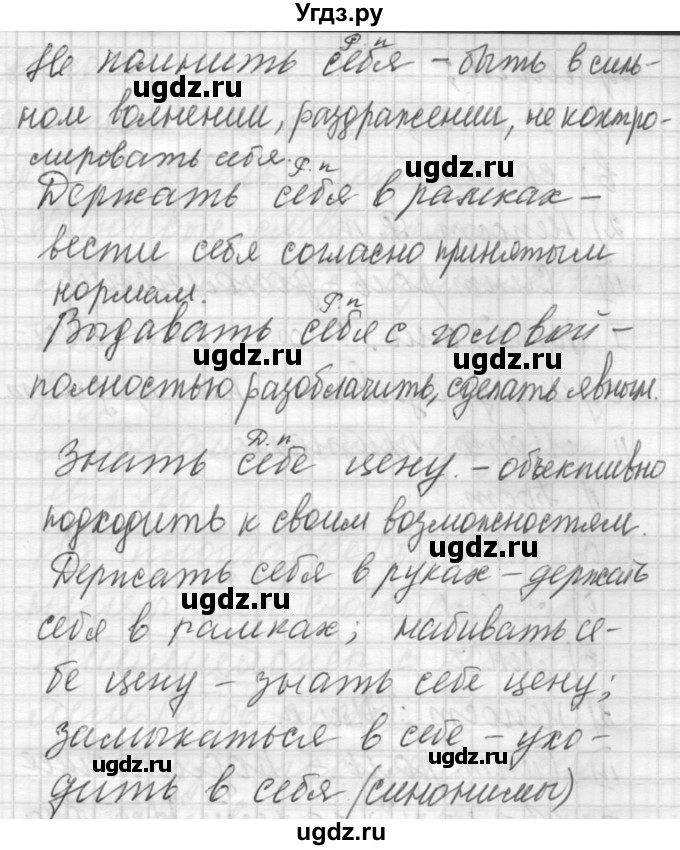 Угдз.ру
Р. п
Не помнить себя – быть в силь-
ugdz.ru
ном волнении, раздражении, не контро-
лировать себя.
ugdz.ru
Р. п
Держать себя в рамках –
вести себя согласно принятым
нормам.
Р. п
Выдавать себя с головой –
ugdz.ru ugdz.ru
полностью разоблачить, сделать явным.
Д. п
Знать себе цену. – объективно
подходить к своим возможностям.
ugdz.ru
Держать себя в руках – держать
ugdz.ru
себя в рамках; набивать се-
бе цену – знать себе цену;
замыкаться в себе – ухо-
ugdz.ru ugdz.ru
дить в себя (синонимы)
ugdz.ru